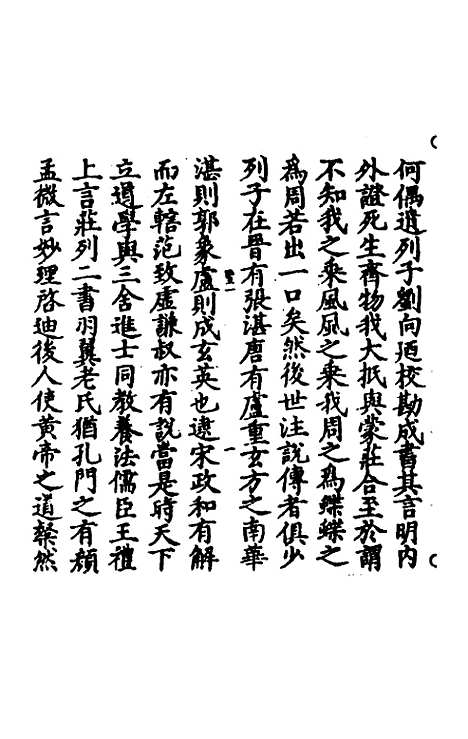 何偶遺列子劉向廼校勘成書其言明内
外證死生齊物我大抵與蒙莊合至於謂
不知我之乘風風之乘我周之爲蝶蝶之
爲周若出一口矣然後世注說傳者俱少
列子在晉有張湛唐有盧重玄方之南華
湛則郭象盧則成玄英也逮宋政和有解
而左轄范致虚謙叔亦有說當是時天下
立道學與三舍進士同教養法儒臣王禮
上言莊列二書羽翼老氏猶孔門之有顔
孟微言妙理啓迪後人使黄帝之道粲然